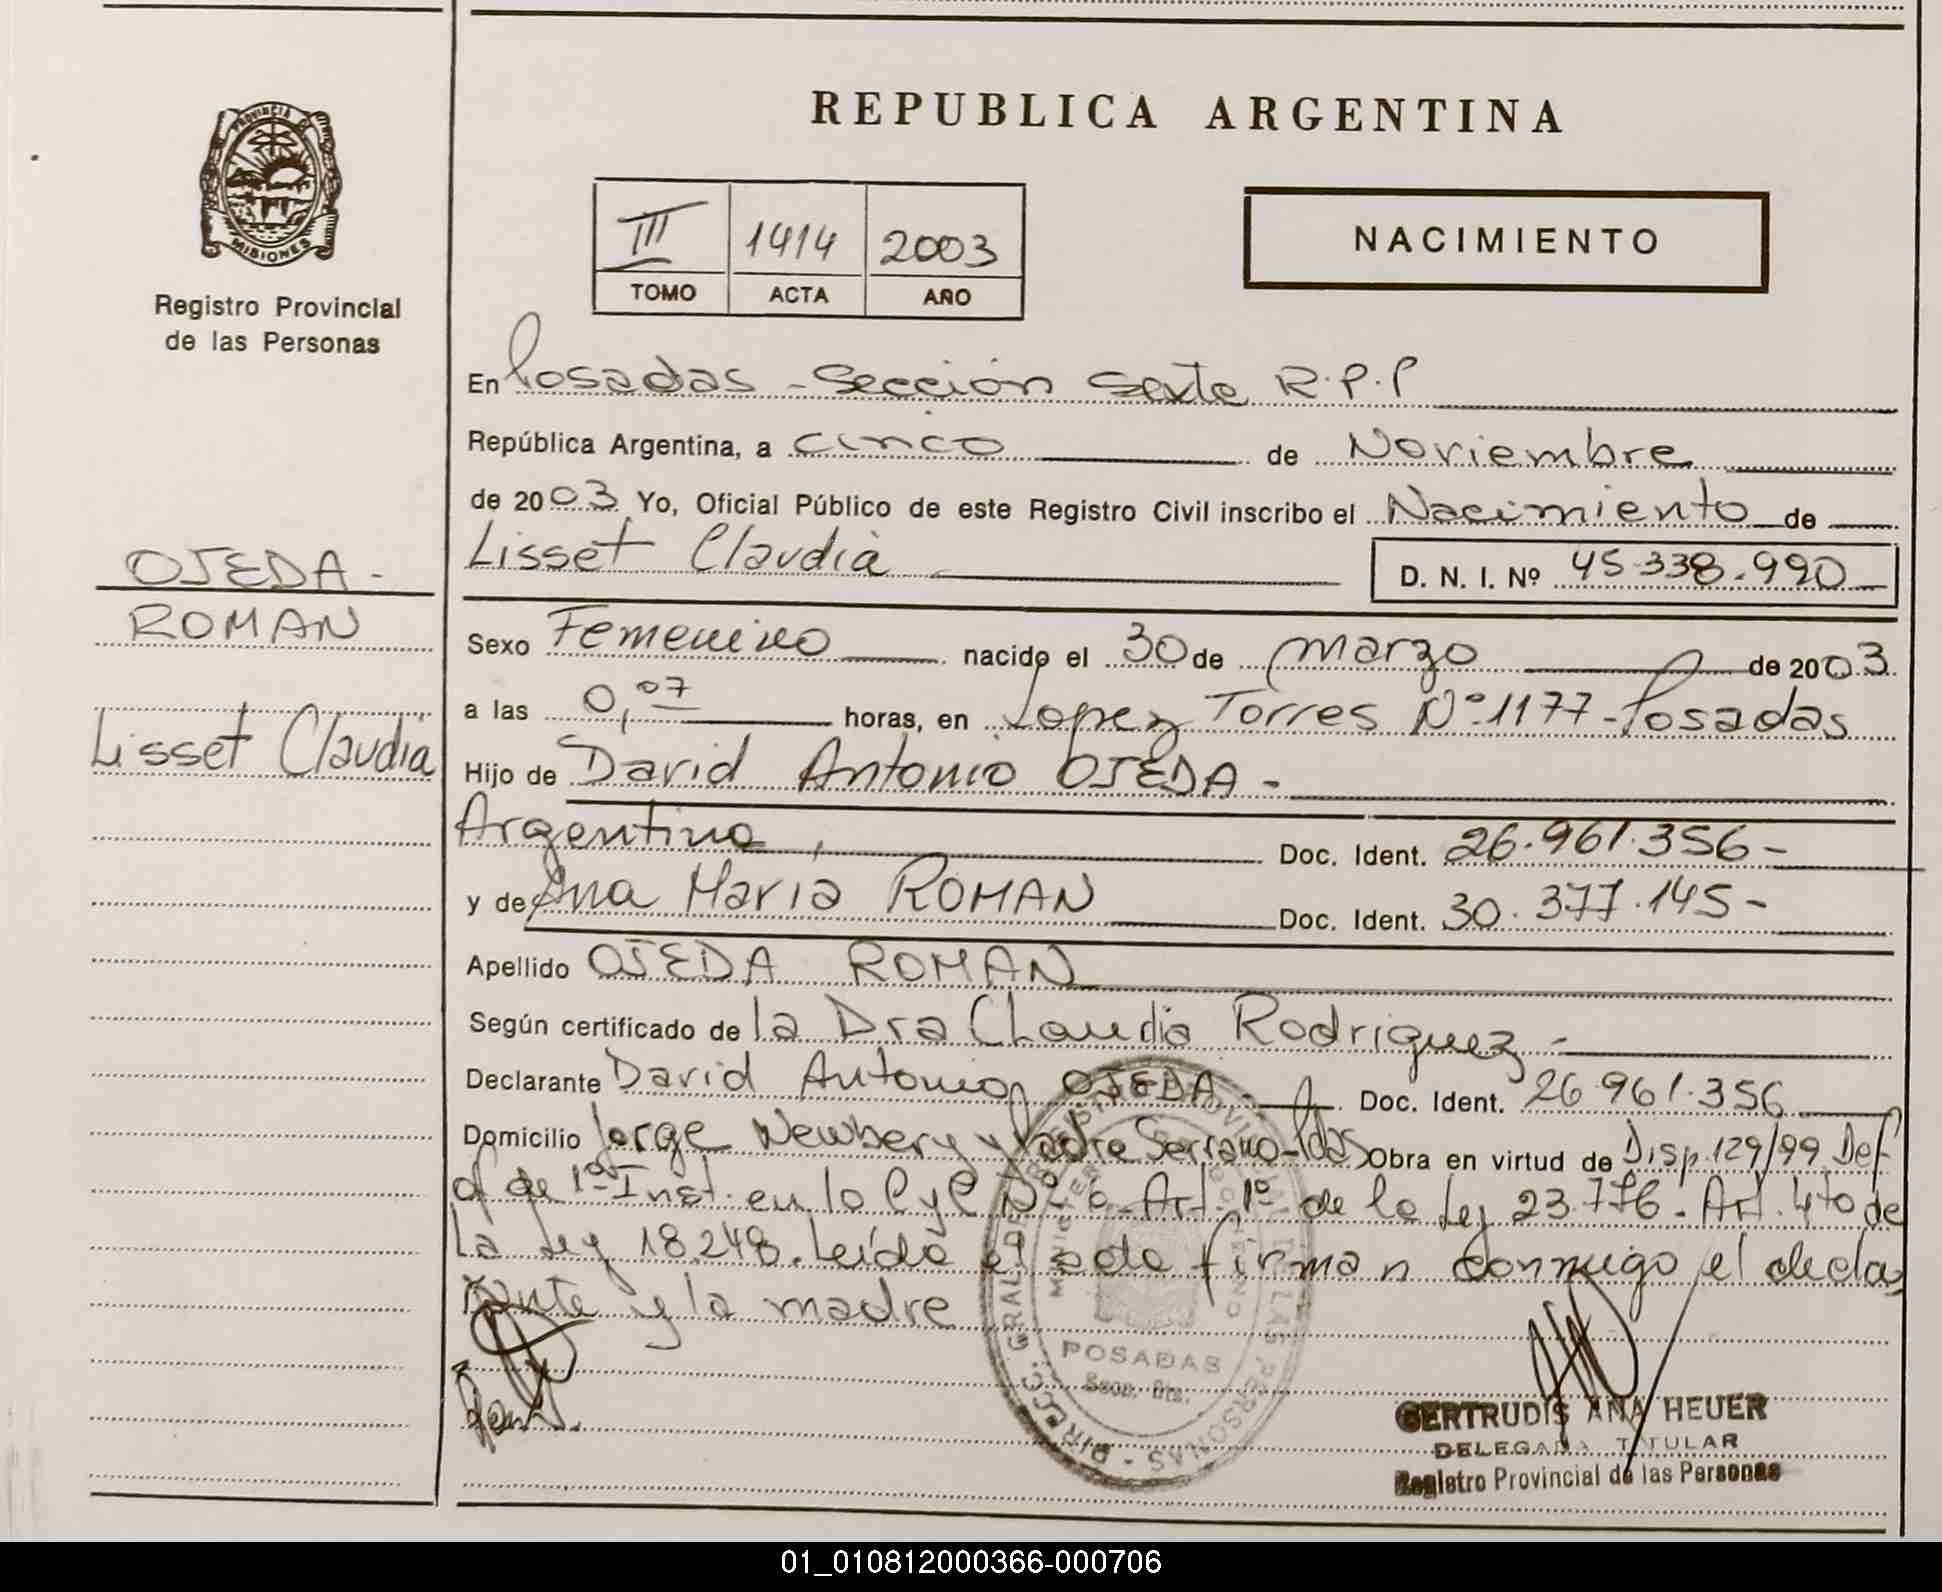 REPUBLICA ARGENTINA
PROVINCIA DE
MISIONES
Registro Provincial
de las Personas
III 1414 2003
TOMO ACTA AÑO
NACIMIENTO
En Posadas - Sección Sexta R.P.P
República Argentina, a cinco de Noviembre
de 2003 Yo, Oficial Público de este Registro Civil inscribo el Nacimiento de
Lisset Claudia D. N. I. Nº 45.338.990
OJEDA -
ROMAN
Lisset Claudia
Sexo Femenino nacido el 30 de marzo de 2003.
a las 0,07 horas, en Lopez Torres Nº 1177 - Posadas
Hijo de David Antonio OJEDA -
Argentino, Doc. Ident. 26.961.356 -
y de Ana Maria ROMAN Doc. Ident. 30.377.145 -
Apellido OJEDA ROMAN
Según certificado de la Dra Claudia Rodriguez -
Declarante David Antonio OJEDA - Doc. Ident. 26.961.356
Domicilio Jorge Newbery y Padre Serrano - Pdas Obra en virtud de Disp. 129/99 Def
of de 1ª Inst. en lo C y C Nº 6 - Art. 1º de la Ley 23.776 - Art. 4to de
La Ley 18.248. Leída el acta firman conmigo el decla
rante y la madre
DIRECC. GRAL. DE REGISTRO PROVINCIAL DE LAS PERSONAS
POSADAS
GERTRUDIS ANA HEUER
DELEGADA TITULAR
Registro Provincial de las Personas
01_010812000366-000706